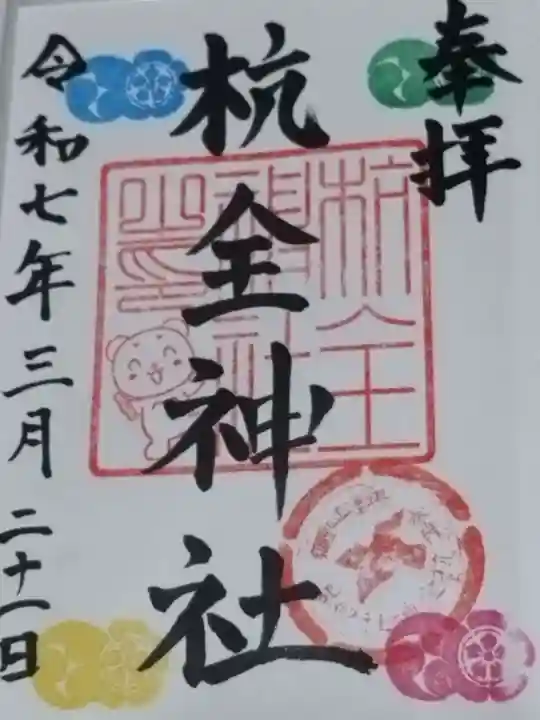 奉拝
杭全神社
令和七年三月二十一日
杭全
神社